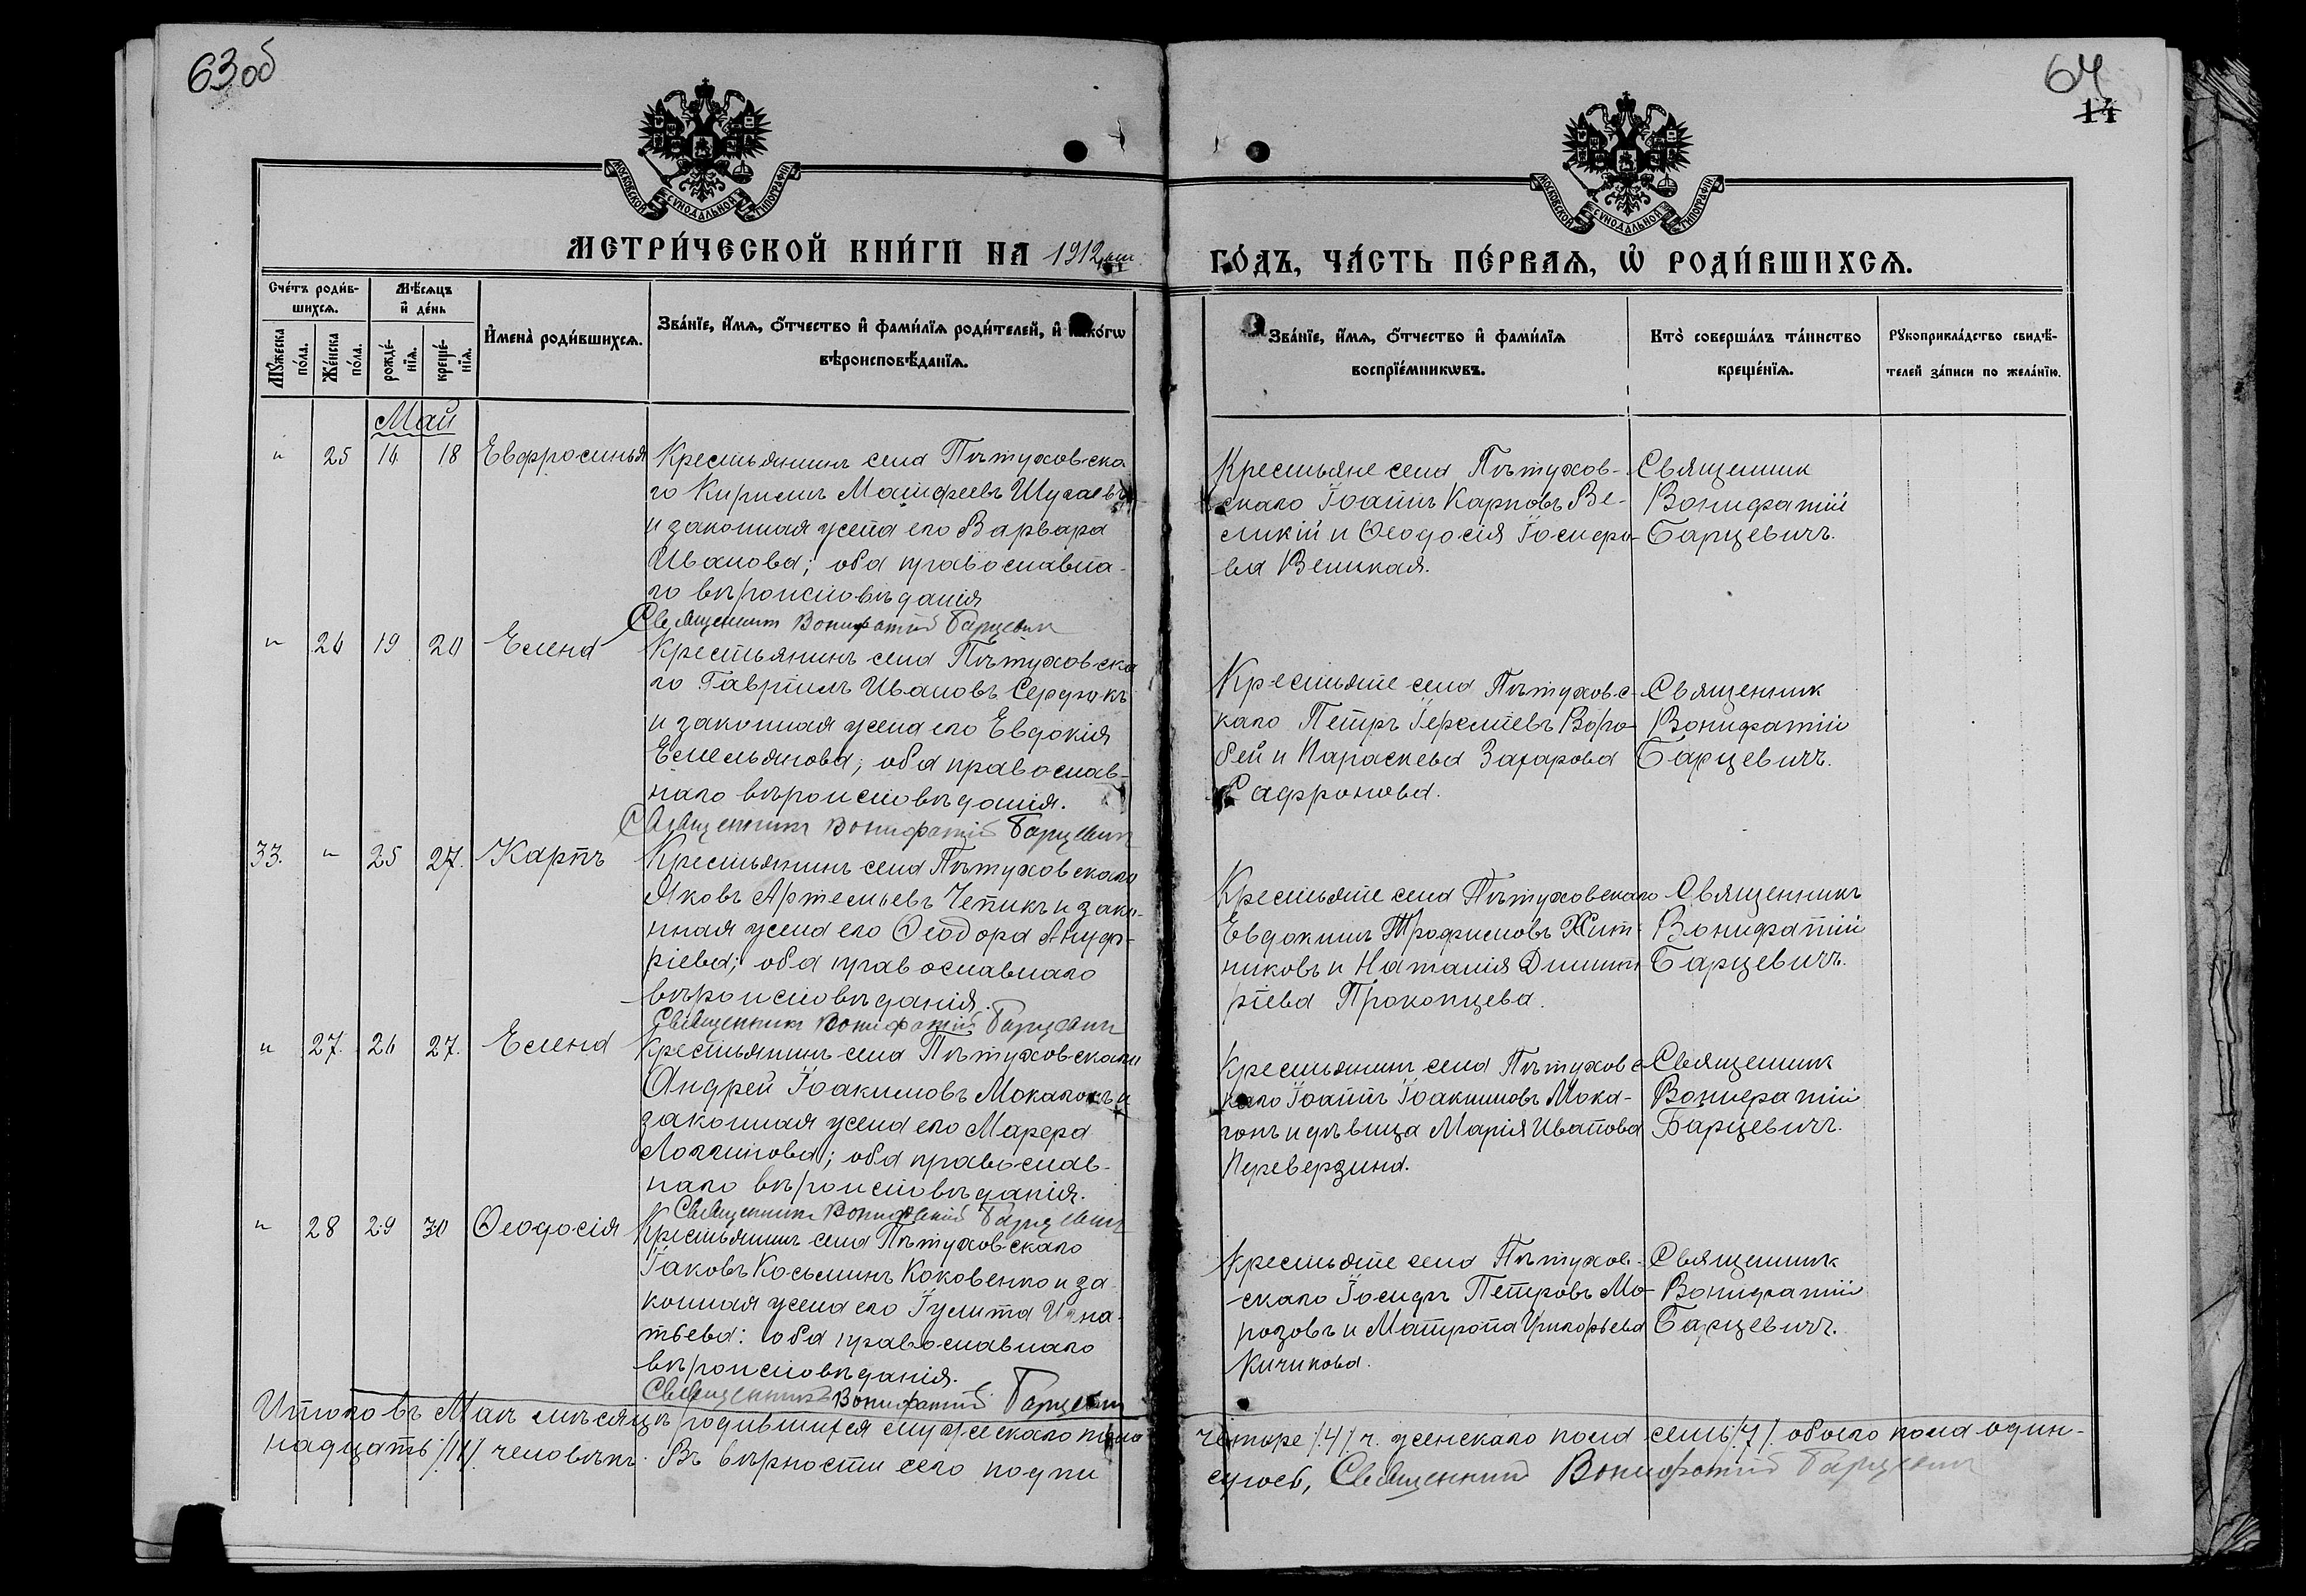 63 об
64
14
МОСКОВСКОЙ СѴНОДАЛЬНОЙ ТИПОГРАФІИ
МОСКОВСКОЙ СѴНОДАЛЬНОЙ ТИПОГРАФІИ
МЕТРИ́ЧЕСКОЙ КНИ́ГИ НА 1912
ГО́ДЪ, ЧА́СТЬ ПЕ́РВАЯ, Ѡ РОДИ́ВШИХСЯ.
Сче́тъ роди́в-
шихся.
Мѣ́сяцъ
и де́нь
Му́жеска
по́ла.
Же́нска
по́ла.
рожде́-
нія.
креще́-
нія.
Имена̀ роди́вшихся.
Зва́ніе, и́мя, о́тчество и фами́лія роди́телей, и како́гѡ
вѣроисповѣ́данія.
Зва́ніе, и́мя, о́тчество и фами́лія
воспріе́мникѡвъ.
Кто̀ соверша́лъ та́инство
креще́нія.
Рукоприкла́дство свидѣ́-
телей за́писи по жела́нію.
Май
" 25 16 18 Евфросинья
Крестьянинъ села Пѣтуховска
го Кириллъ Матфеевъ Шугаевъ
и законная жена его Варвара
Иванова; оба православна-
го вѣроисповѣданія
Священникъ Вонифатій Барцевичъ
Крестьяне села Пѣтухов-
скаго Іоаннъ Карповъ Ве-
ликій и Ѳеодосія Іосифо-
ва Великая.
Священникъ
Вонифатій
Барцевичъ.
" 26 19 20 Елена
Крестьянинъ села Пѣтуховска
го Гавріилъ Ивановъ Сердюкъ
и законная жена его Евдокія
Емельянова; оба православ-
наго вѣроисповѣданія.
Священникъ Вонифатій Барцевичъ
Крестьяне села Пѣтуховс-
каго Петръ Іереміевъ Воро-
бей и Параскева Захарова
Сафронова.
Священник
Вонифатій
Барцевичъ.
33. " 25 27. Карпъ
Крестьянинъ села Пѣтуховскаго
Яковъ Артемьевъ Чепикъ и зако-
нная жена его Ѳеодора Ануф-
ріева; оба православнаго
вѣроисповѣданія.
Священникъ Вонифатій Барцевичъ
Крестьяне села Пѣтуховскаго
Евдокимъ Трофимовъ Жит-
никовъ и Наталія Димит-
ріева Прокопцева.
Священникъ
Вонифатій
Барцевичъ.
" 27. 26 27. Елена
Крестьянинъ села Пѣтуховскаго
Андрей Іоакимовъ Мокагонъ и
законная жена его Марфа
Логгинова; оба православ-
наго вѣроисповѣданія.
Священникъ Вонифатій Барцевичъ
Крестьянинъ села Пѣтуховс-
каго Іоаннъ Іоакимовъ Мока-
гонъ и дѣвица Марія Иванова
Переверзина.
Священникъ
Вонифатій
Барцевичъ.
" 28 29 30 Ѳеодосія
Крестьянинъ села Пѣтуховскаго
Іаковъ Косьминъ Коковенко и за
конная жена его Іулита Игна-
тьева: оба православнаго
вѣроисповѣданія.
Священникъ Вонифатий Барцевич
Крестьяне села Пѣтухов-
скаго Іосифъ Петровъ Мо-
розовъ и Матрона Григорьева
Кичикова.
Священникъ
Вонифатій
Барцевичъ.
Итого въ Маѣ мѣсяцѣ родившихся мужескаго пола четыре /4/ ч. женскаго пола семь /7/. обоего пола один-
надцать /11/ человѣкъ. Въ вѣрности сего подпи суюсь, Священник Вонифатий Барцевич